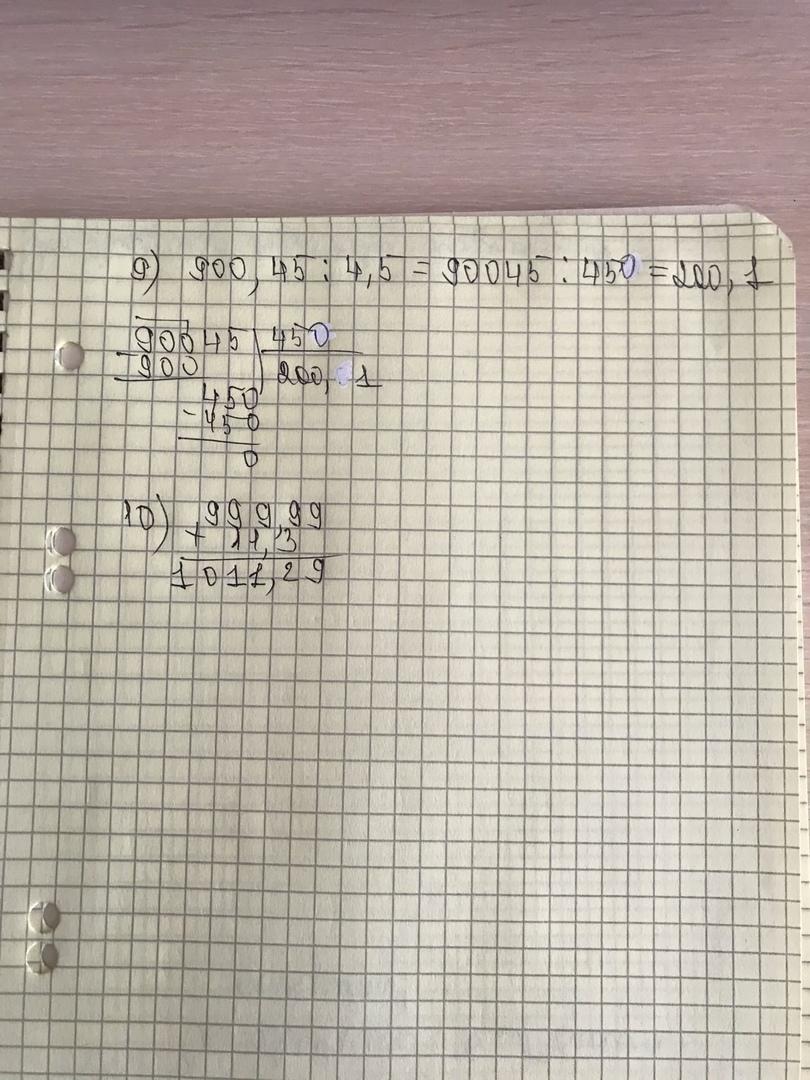 9) 900,45 : 4,5 = 90045 : 450 = 200,1
90045 | 450
900 | 200, 1
450
- 450
0
10) 999,99
+ 11,3
1011,29